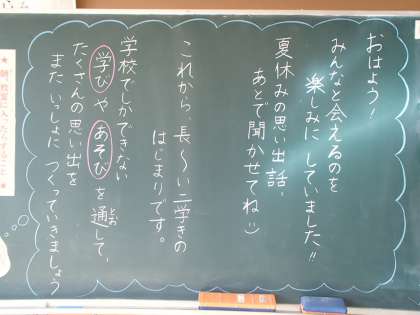 おはよう!
みんなと会えるのを
楽しみにしていました!!
夏休みの思い出話、
あとで聞かせてね:)
これから、長〜い二学きの
はじまりです。
学校でしかできない
学びやあそびを通して、
とお
たくさんの思い出を
また、いっしょにつくっていきましょう